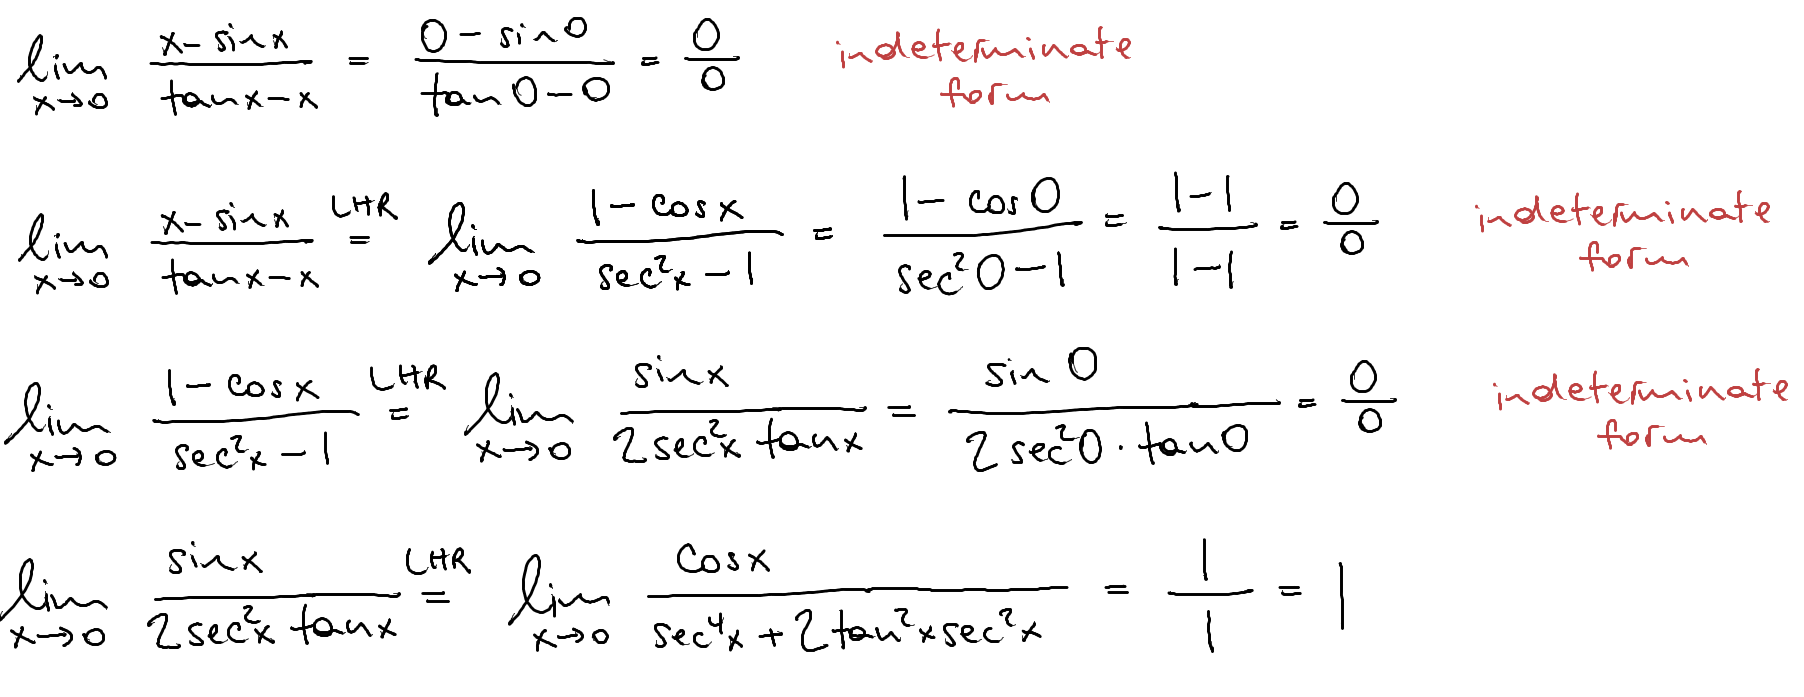 lim x→0 (x - sin x)/(tan x - x) = (0 - sin 0)/(tan 0 - 0) = 0/0 indeterminate form
lim x→0 (x - sin x)/(tan x - x) LHR = lim x→0 (1 - cos x)/(sec²x - 1) = (1 - cos 0)/(sec²0 - 1) = (1-1)/(1-1) = 0/0 indeterminate form
lim x→0 (1 - cos x)/(sec²x - 1) LHR = lim x→0 (sin x)/(2 sec²x tan x) = (sin 0)/(2 sec²0 · tan 0) = 0/0 indeterminate form
lim x→0 (sin x)/(2 sec²x tan x) LHR = lim x→0 (cos x)/(sec⁴x + 2 tan²x sec²x) = 1/1 = 1